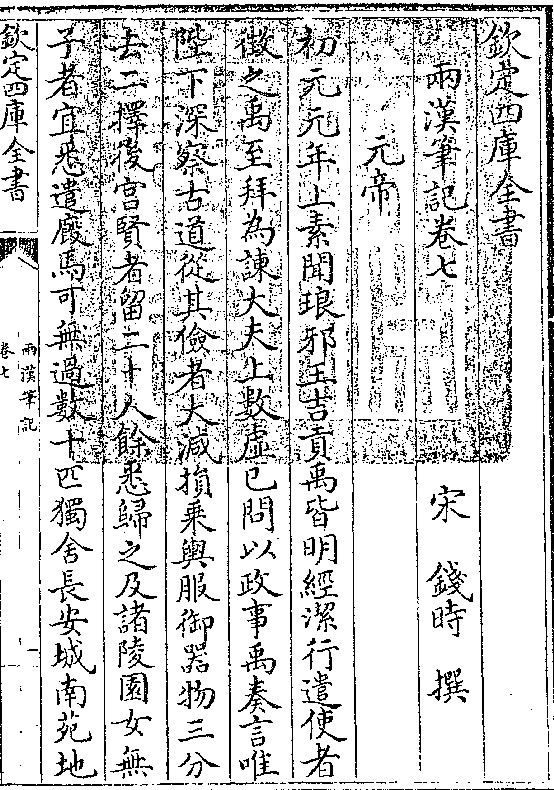 欽定四庫全書
兩漢筆記卷七
宋 錢時 撰
元帝
初元元年上素聞琅邪王吉貢禹皆明經潔行遣使者
徵之禹至拜為諫大夫上數虛已問以政事禹奏言唯
陛下深察古道從其儉者大減損乗輿服御器物三分
去二擇後宫賢者留二十人餘悉歸之及諸陵園女無
子者宜悉遣廐馬可無過數十匹獨舍長安城南苑地
欽定四庫全書
兩漢筆記
卷七
一